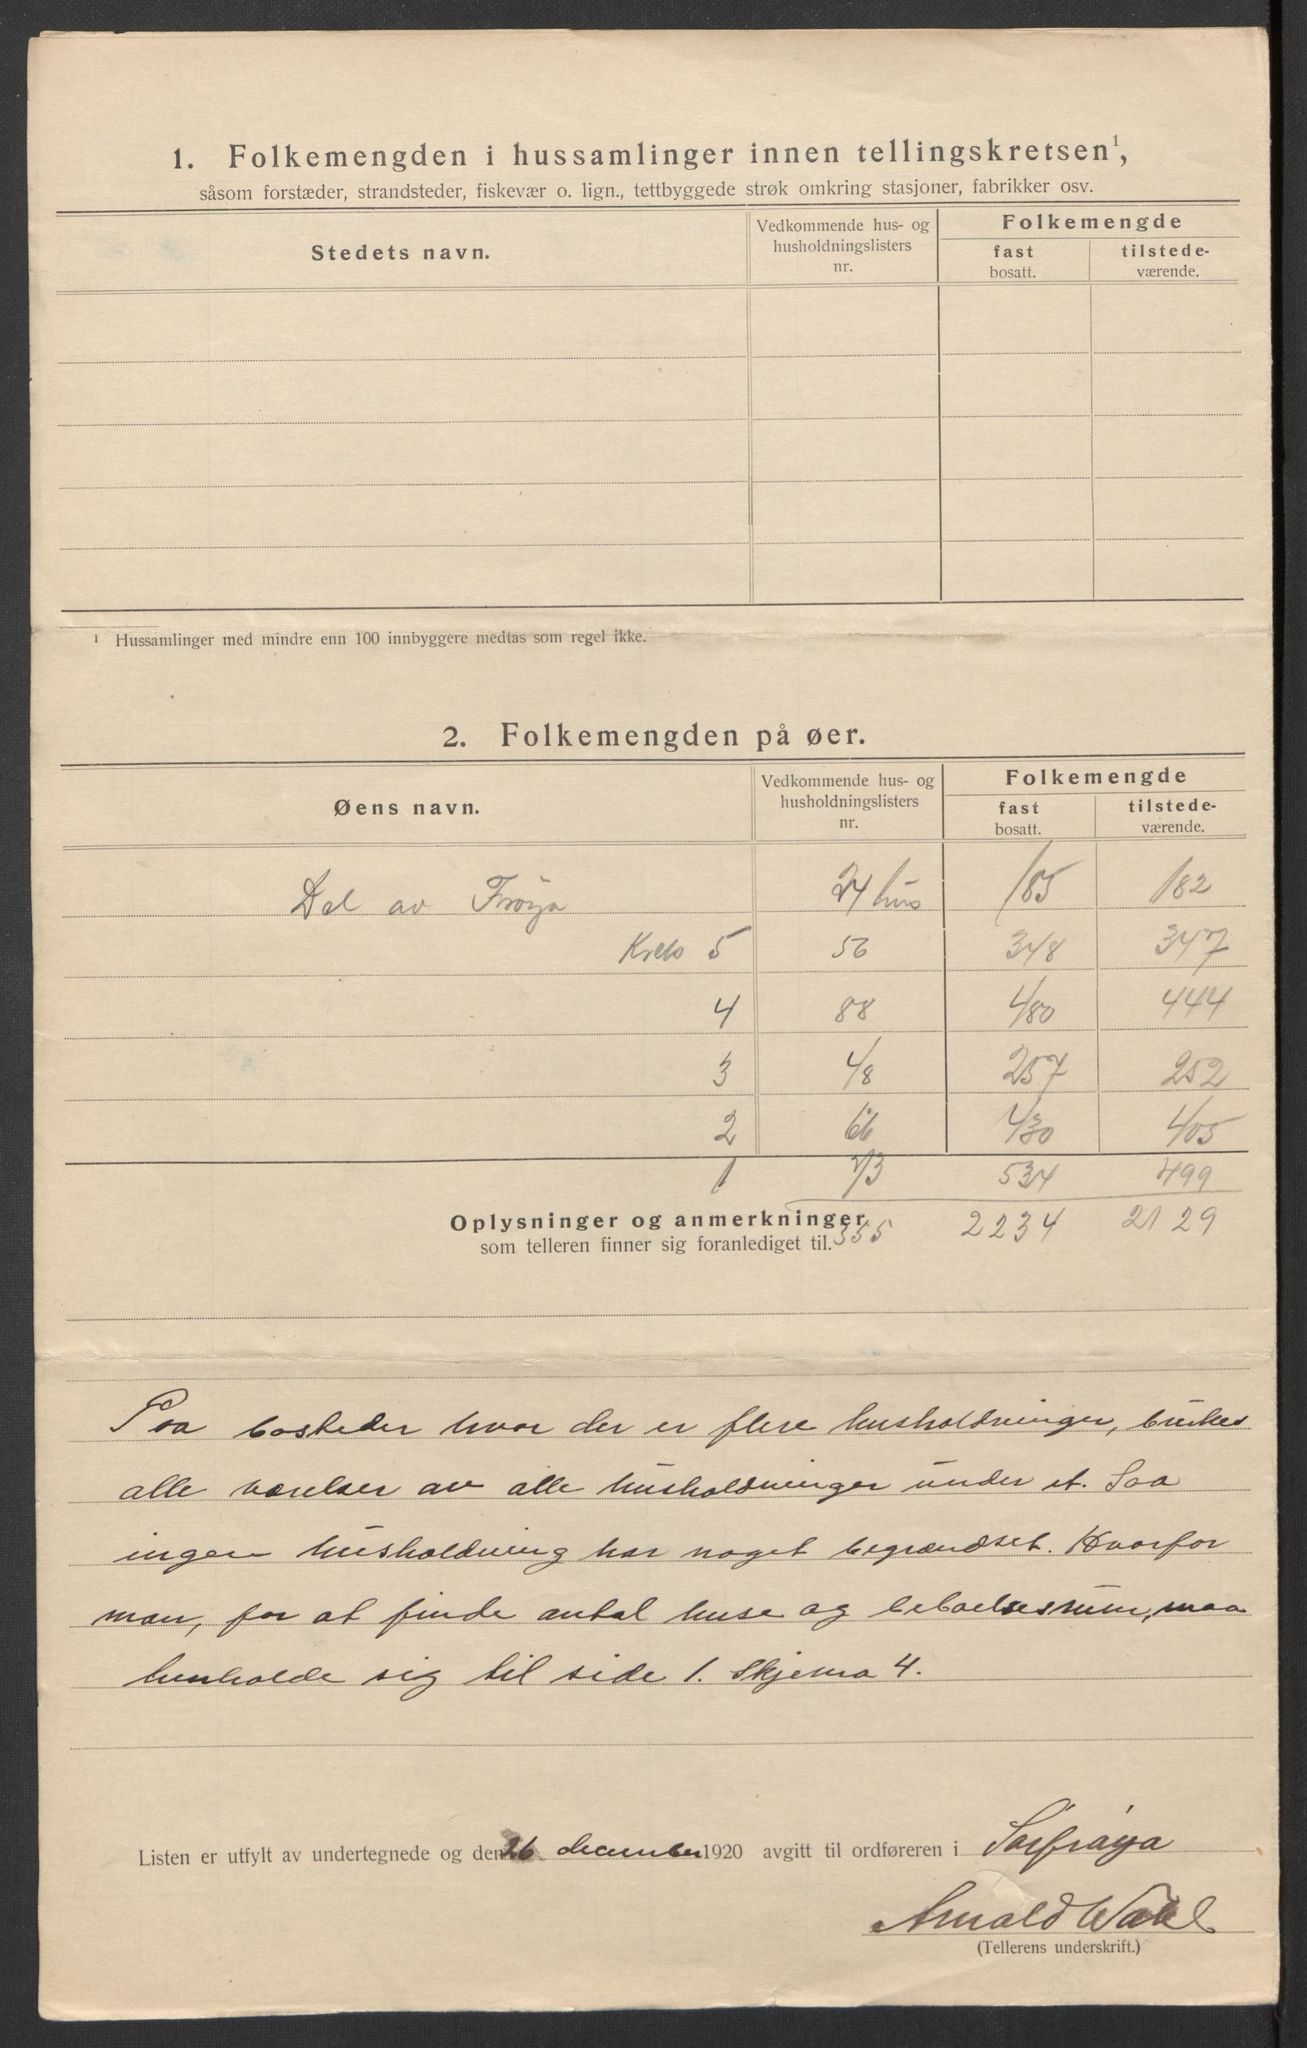 1. Folkemengden i hussamlinger innen tellingskretsen¹,
såsom forstæder, strandsteder, fiskevær o. lign., tettbyggede strøk omkring stasjoner, fabrikker osv.
Stedets navn.
Vedkommende hus- og
husholdningslisters
nr.
Folkemengde
fast
bosatt.
tilstede-
værende.
¹ Hussamlinger med mindre enn 100 innbyggere medtas som regel ikke.
2. Folkemengden på øer.
Øens navn.
Vedkommende hus- og
husholdningslisters
nr.
Folkemengde
fast
bosatt.
tilstede-
værende.
Del av Frøya 24 hus 185 182
Kreds 5 56 348 347
4 88 480 444
3 48 257 252
2 66 430 405
1 73 534 499
355 2234 2129
Oplysninger og anmerkninger
som telleren finner sig foranlediget til.
Paa bosteder hvor der er flere husholdninger, brukes
alle værelser av alle husholdninger under et. Saa
ingen husholdning har noget begrændset. Hvorfor
man, for at finde antal huse og beboelsesrum, maa
henholde sig til side 1. Skjema 4.
Listen er utfylt av undertegnede og den 26 december 1920 avgitt til ordføreren i Sørfrøya
Arnold Wahl
(Tellerens underskrift.)